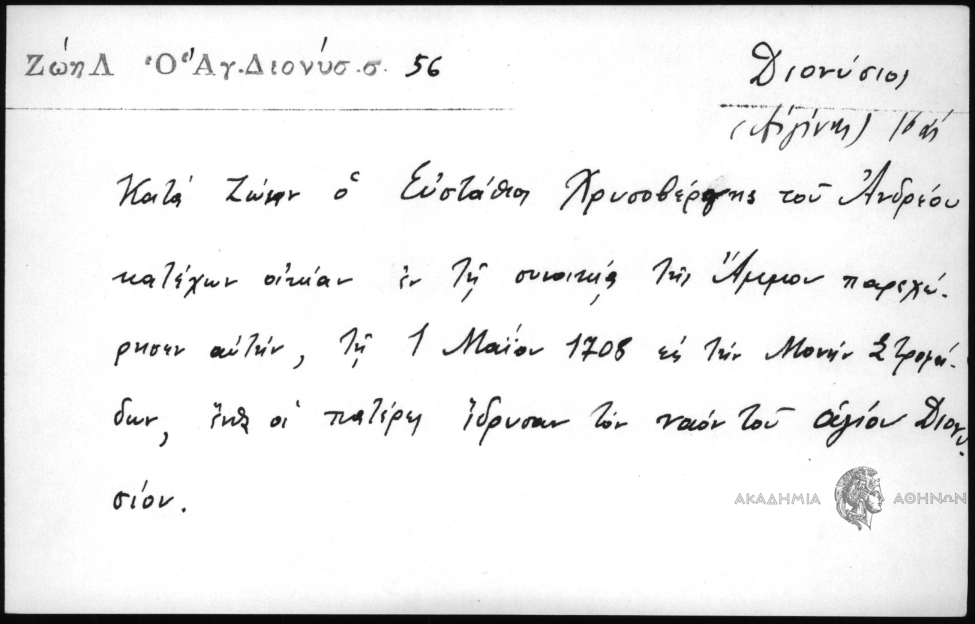 Ζώη Λ Ὁ Ἅγ. Διονύσ. σ. 56
Διονύσιος
(Αἰγίνης)
Κατά Ζώην ὁ Εὐστάθιος Χρυσοβέργης τοῦ Ἀνδρέου
κατέχων οἰκίαν ἐν τῇ συνοικίᾳ τῆς Ἄμμου παρεχώ-
ρησεν αὐτήν, τῇ 1 Μαΐου 1708 εἰς τήν Μονήν Στροφά-
δων, ἔνθα οἱ πατέρες ἵδρυσαν τόν ναόν τοῦ ἁγίου Διονυ-
σίου.
ΑΚΑΔΗΜΙΑ ΑΘΗΝΩΝ